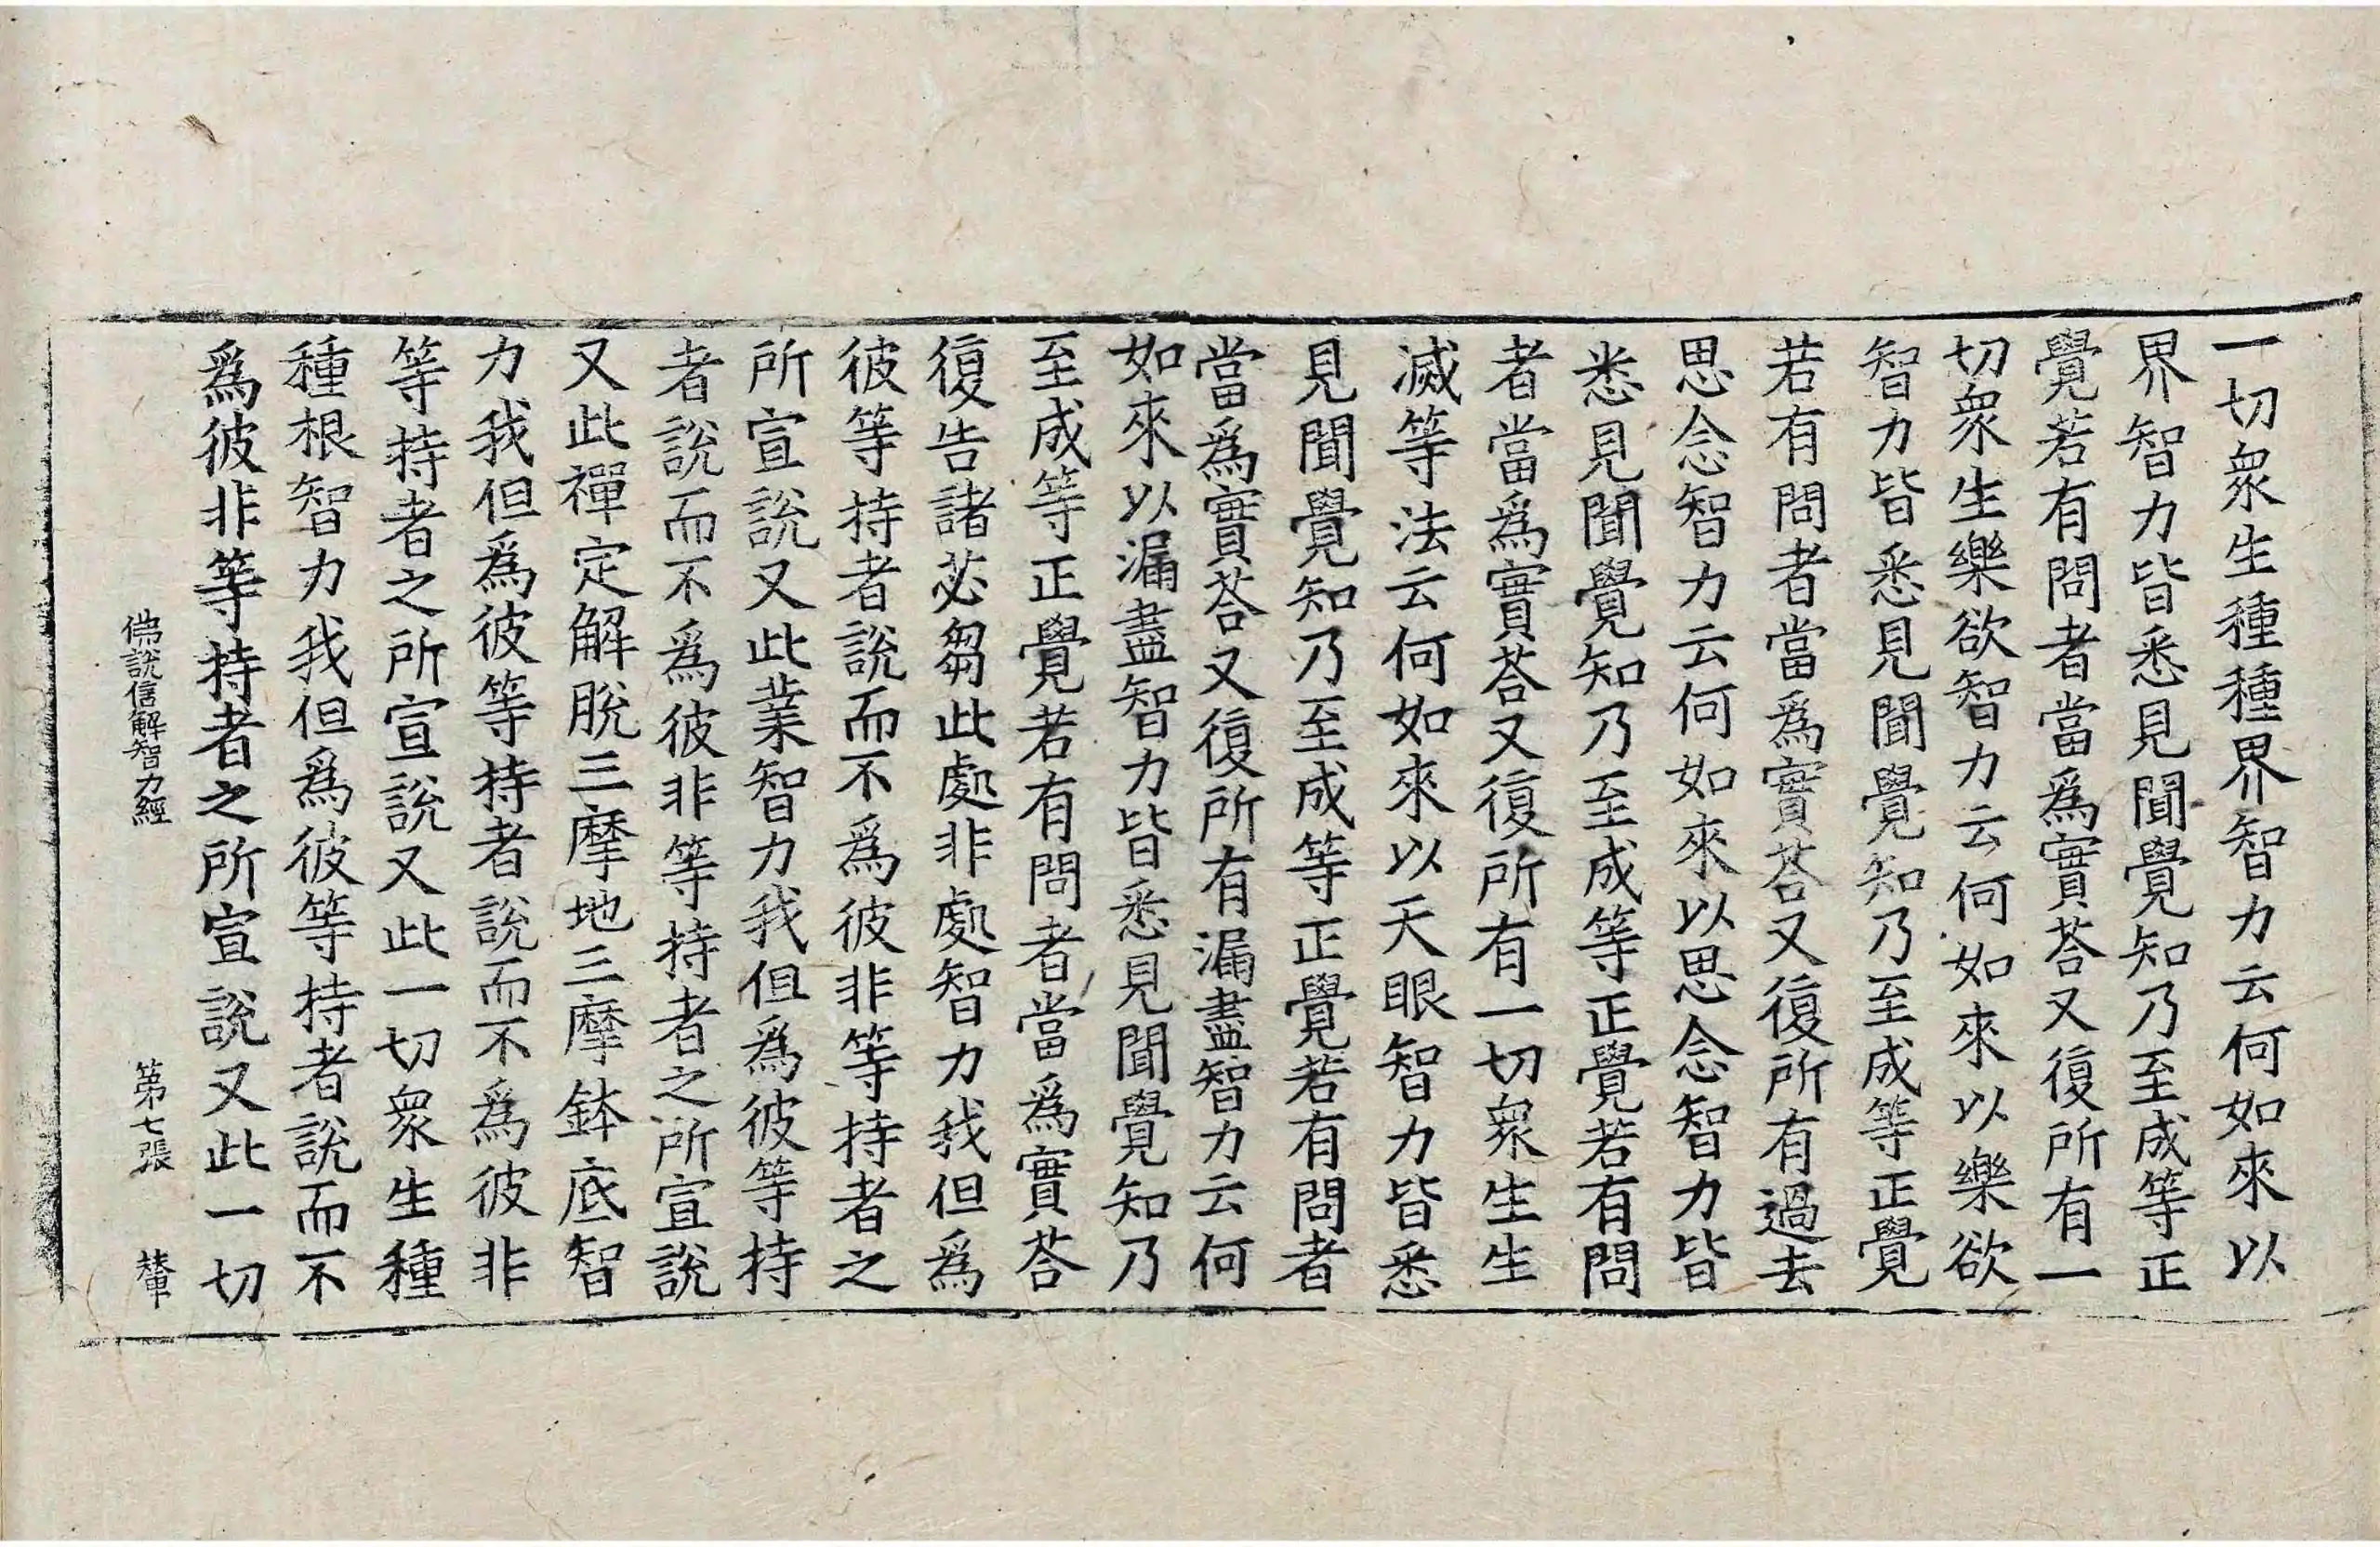 一切衆生種種界智力云何如來以
界智力皆悉見聞覺知乃至成等正
覺若有問者當爲實荅又復所有一
切衆生樂欲智力云何如來以樂欲
智力皆悉見聞覺知乃至成等正覺
若有問者當爲實荅又復所有過去
思念智力云何如來以思念智力皆
悉見聞覺知乃至成等正覺若有問
者當爲實荅又復所有一切衆生生
滅等法云何如來以天眼智力皆悉
見聞覺知乃至成等正覺若有問者
當爲實荅又復所有漏盡智力云何
如來以漏盡智力皆悉見聞覺知乃
至成等正覺若有問者當爲實荅
復告諸苾芻此處非處智力我但爲
彼等持者說而不爲彼非等持者之
所宣說又此業智力我但爲彼等持
者說而不爲彼非等持者之所宣說
又此禪定解脫三摩地三摩鉢底智
力我但爲彼等持者說而不爲彼非
等持者之所宣說又此一切衆生種
種根智力我但爲彼等持者說而不
爲彼非等持者之所宣說又此一切
佛說信解智力經 第七張 輦